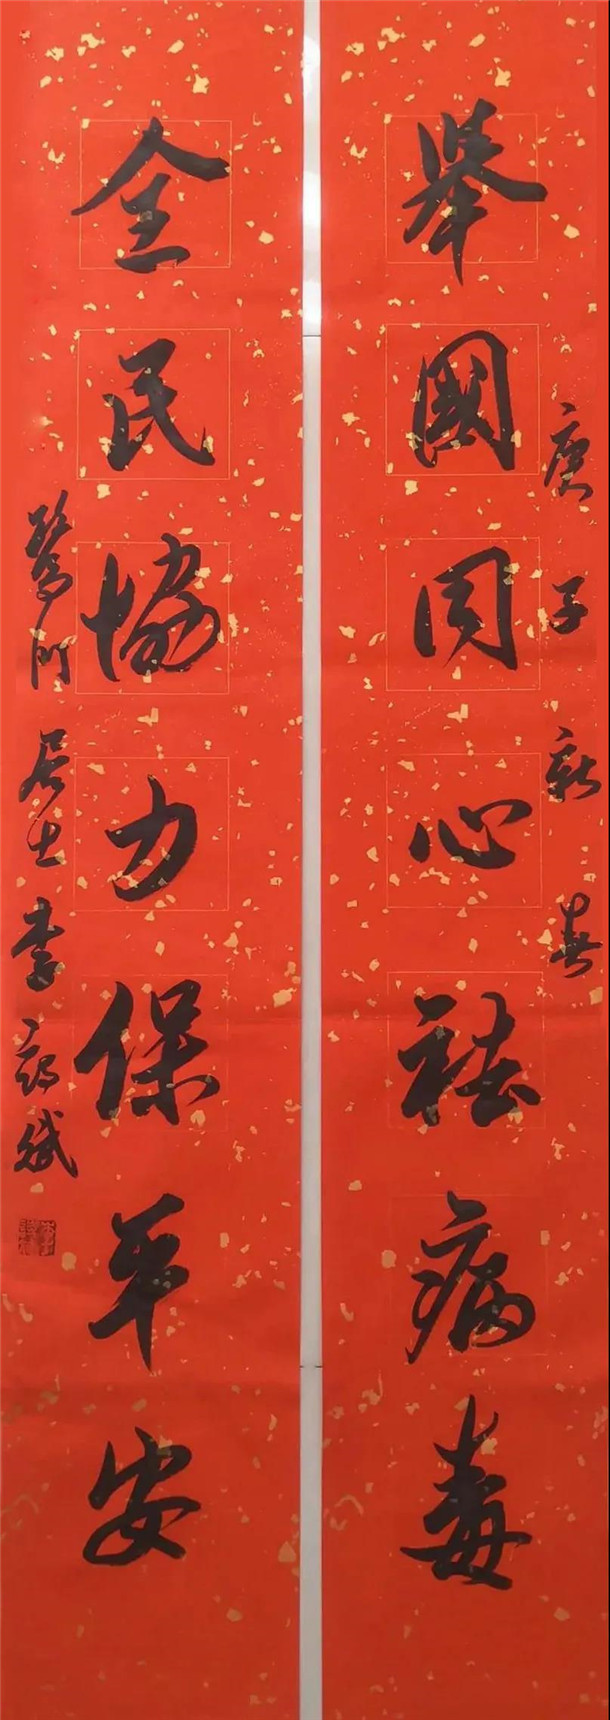 庚子新春
舉國同心祛病毒
全民協力保平安
門居士李斌